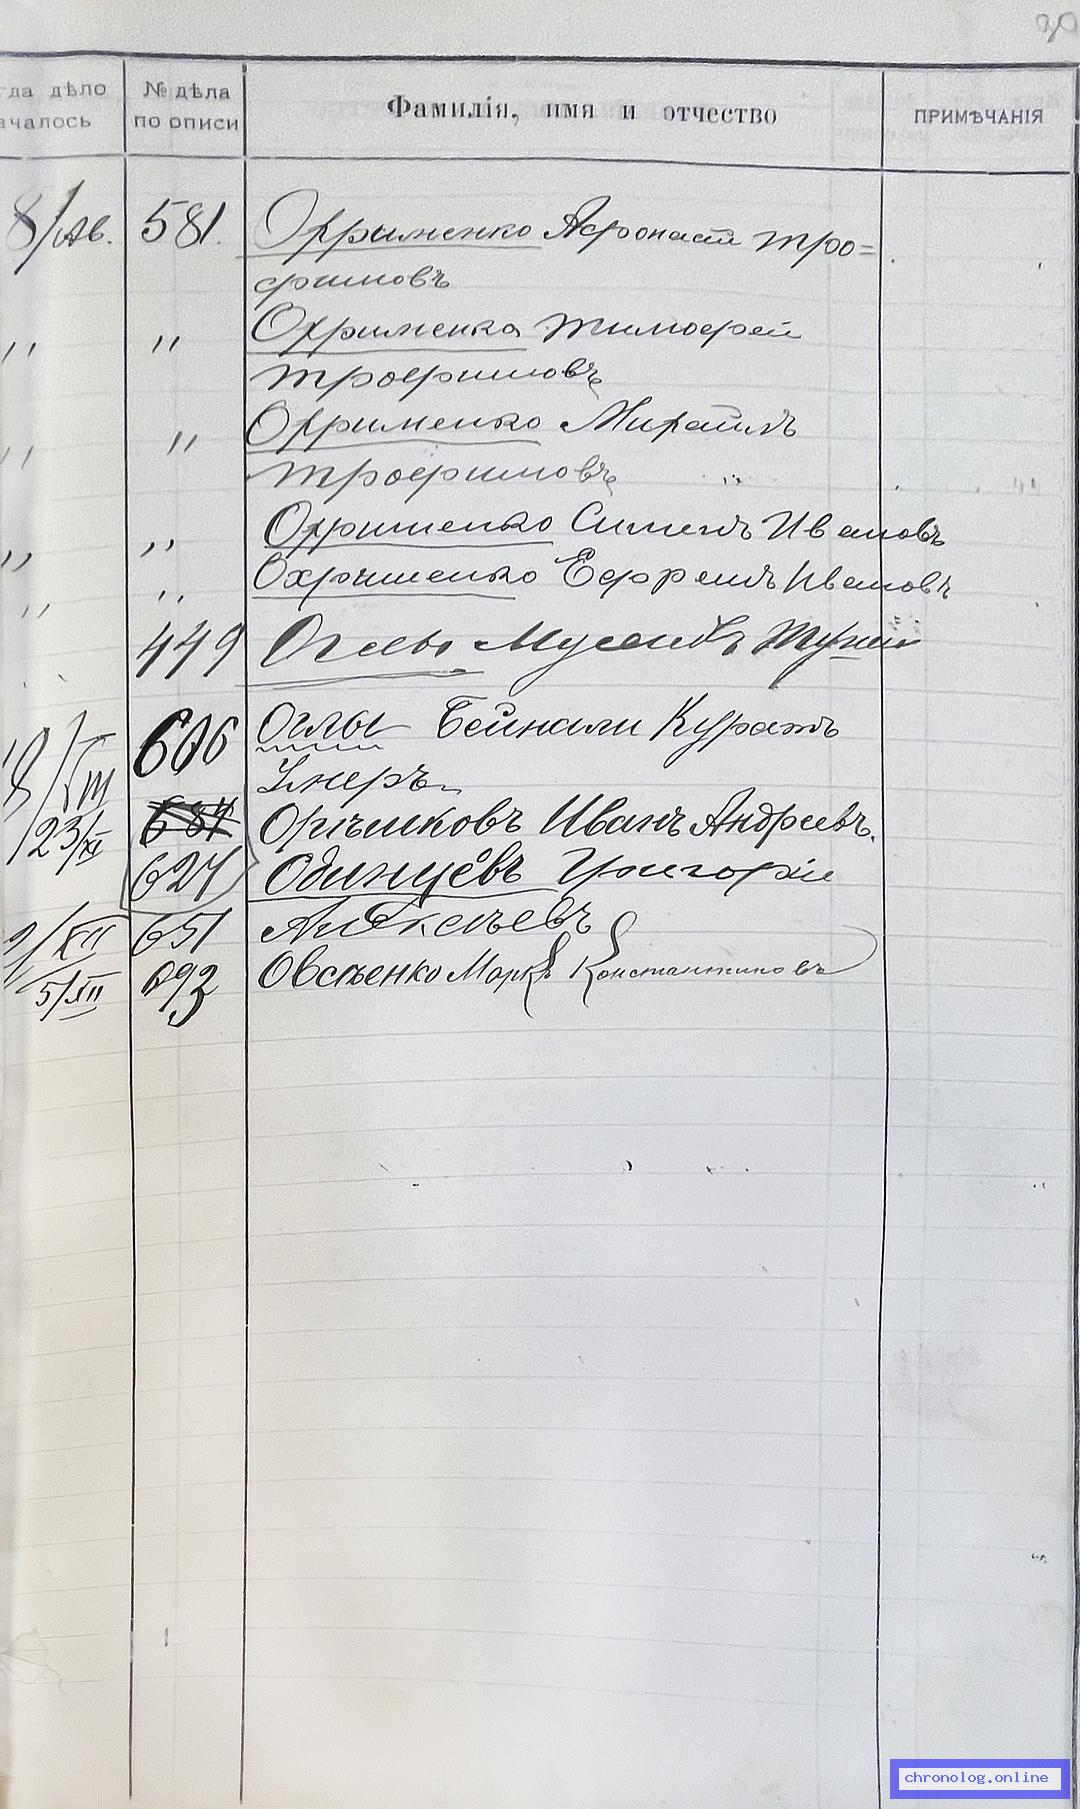 30
гда дѣло
ачалось
№ дѣла
по описи
Фамилія, имя и отчество
ПРИМѢЧАНІЯ
8/Ав. 581. Охрименко Афонасий Тро=
фимовъ
" " Охрименко Тимофей
Трофимовъ
" " Охрименко Михаилъ
Трофимовъ
" " Охрименко Сименъ Ивановъ
" " Охрименко Ефремъ Ивановъ
449 Оглы
18/VIII 606 Оглы Бейнали Куратъ
23/XI 627 Оричиковъ Иванъ Андреевъ.
Одинцевъ Григорій
2/XII 651 Алексѣевъ
5/XII 693 Овсѣенко Маркъ Константиновъ
chronolog.online